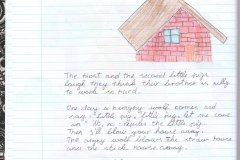 The first and the second little pigs
laugh they think their brother is silly
to work so hard.
One day a hungry wolf comes and
says "Little pig, little pig let me come
in". "No, no" replies the little pig.
Then I'll blow your house away.
The angry wolf blows the straw house
and the stick house away.